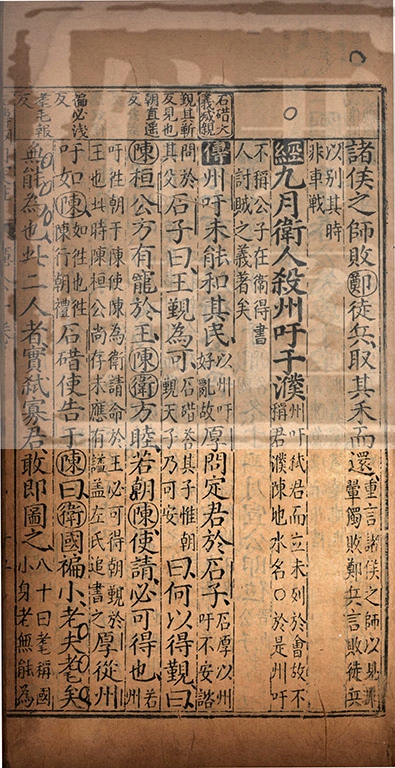 諸侯之師敗鄭徒兵取其禾而還重言諸侯之師以見非翬獨敗鄭兵言敗徒兵
以別其時非車戰
經九月衛人殺州吁于濮州吁弑君而立未列於會故不稱君濮陳地水名〇於是州吁
不稱公子在衛得書人討賊之義著矣
石碏大義滅親
傳州吁未能和其民以州吁好亂故厚問定君於石子石厚以州吁不安諮
覲其靳反見也
問於其父石子曰王覲為可石碏荅其子惟朝覲天子乃可安曰何以得覲曰
朝直遙反
陳桓公方有寵於王陳衛方睦若朝陳使請必可得也若州
吁往朝于陳使陳為衛請命於王必可得朝覲於王也此時陳桓公尚存未應有謚蓋左氏追書之厚從州
褊必淺反
吁如陳如往也往陳行朝禮石碏使告于陳曰衛國褊小老夫耄矣
耄毛報反
無能為也此二人者實弑寡君敢即圖之八十曰耄稱國小身老無能為